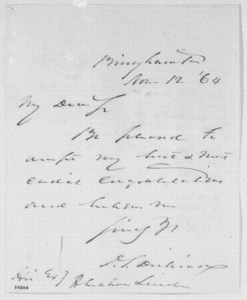 Binghamton
Nov 12 '64
My Dear Sir
Be pleased to
accept my best & most
cordial congratulations
and believe me
Sincy Yr
D.S. Dickinson
His Exy
Abraham Lincoln